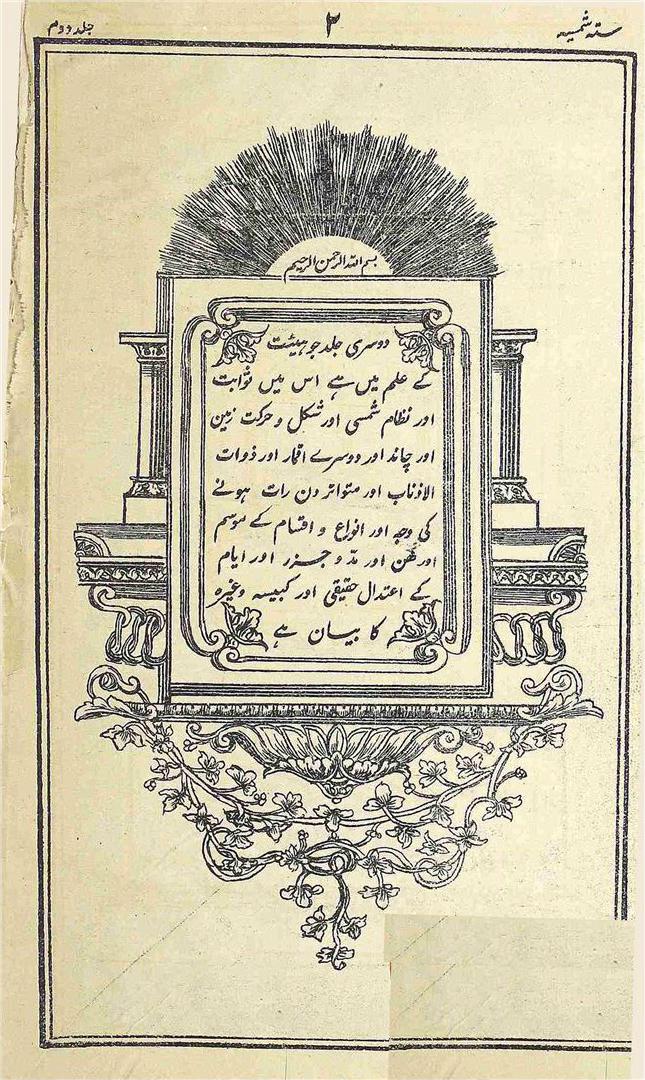 ستہ شمسیہ
۲
جلد دوم
بسم اللہ الرحمن الرحیم
دوسری جلد جو ہیئت
کے علم میں ہے اس میں ثوابت
اور نظام شمسی اور شکل و حرکت زمین
اور چاند اور دوسرے اقمار اور ذوات
الاذناب اور متواتر دن رات ہونے
کی وجہ اور انواع و اقسام کے موسم
اور مدّ و جزر اور ایام
کے اعتدال حقیقی اور کبیسہ وغیرہ
کا بیان ہے